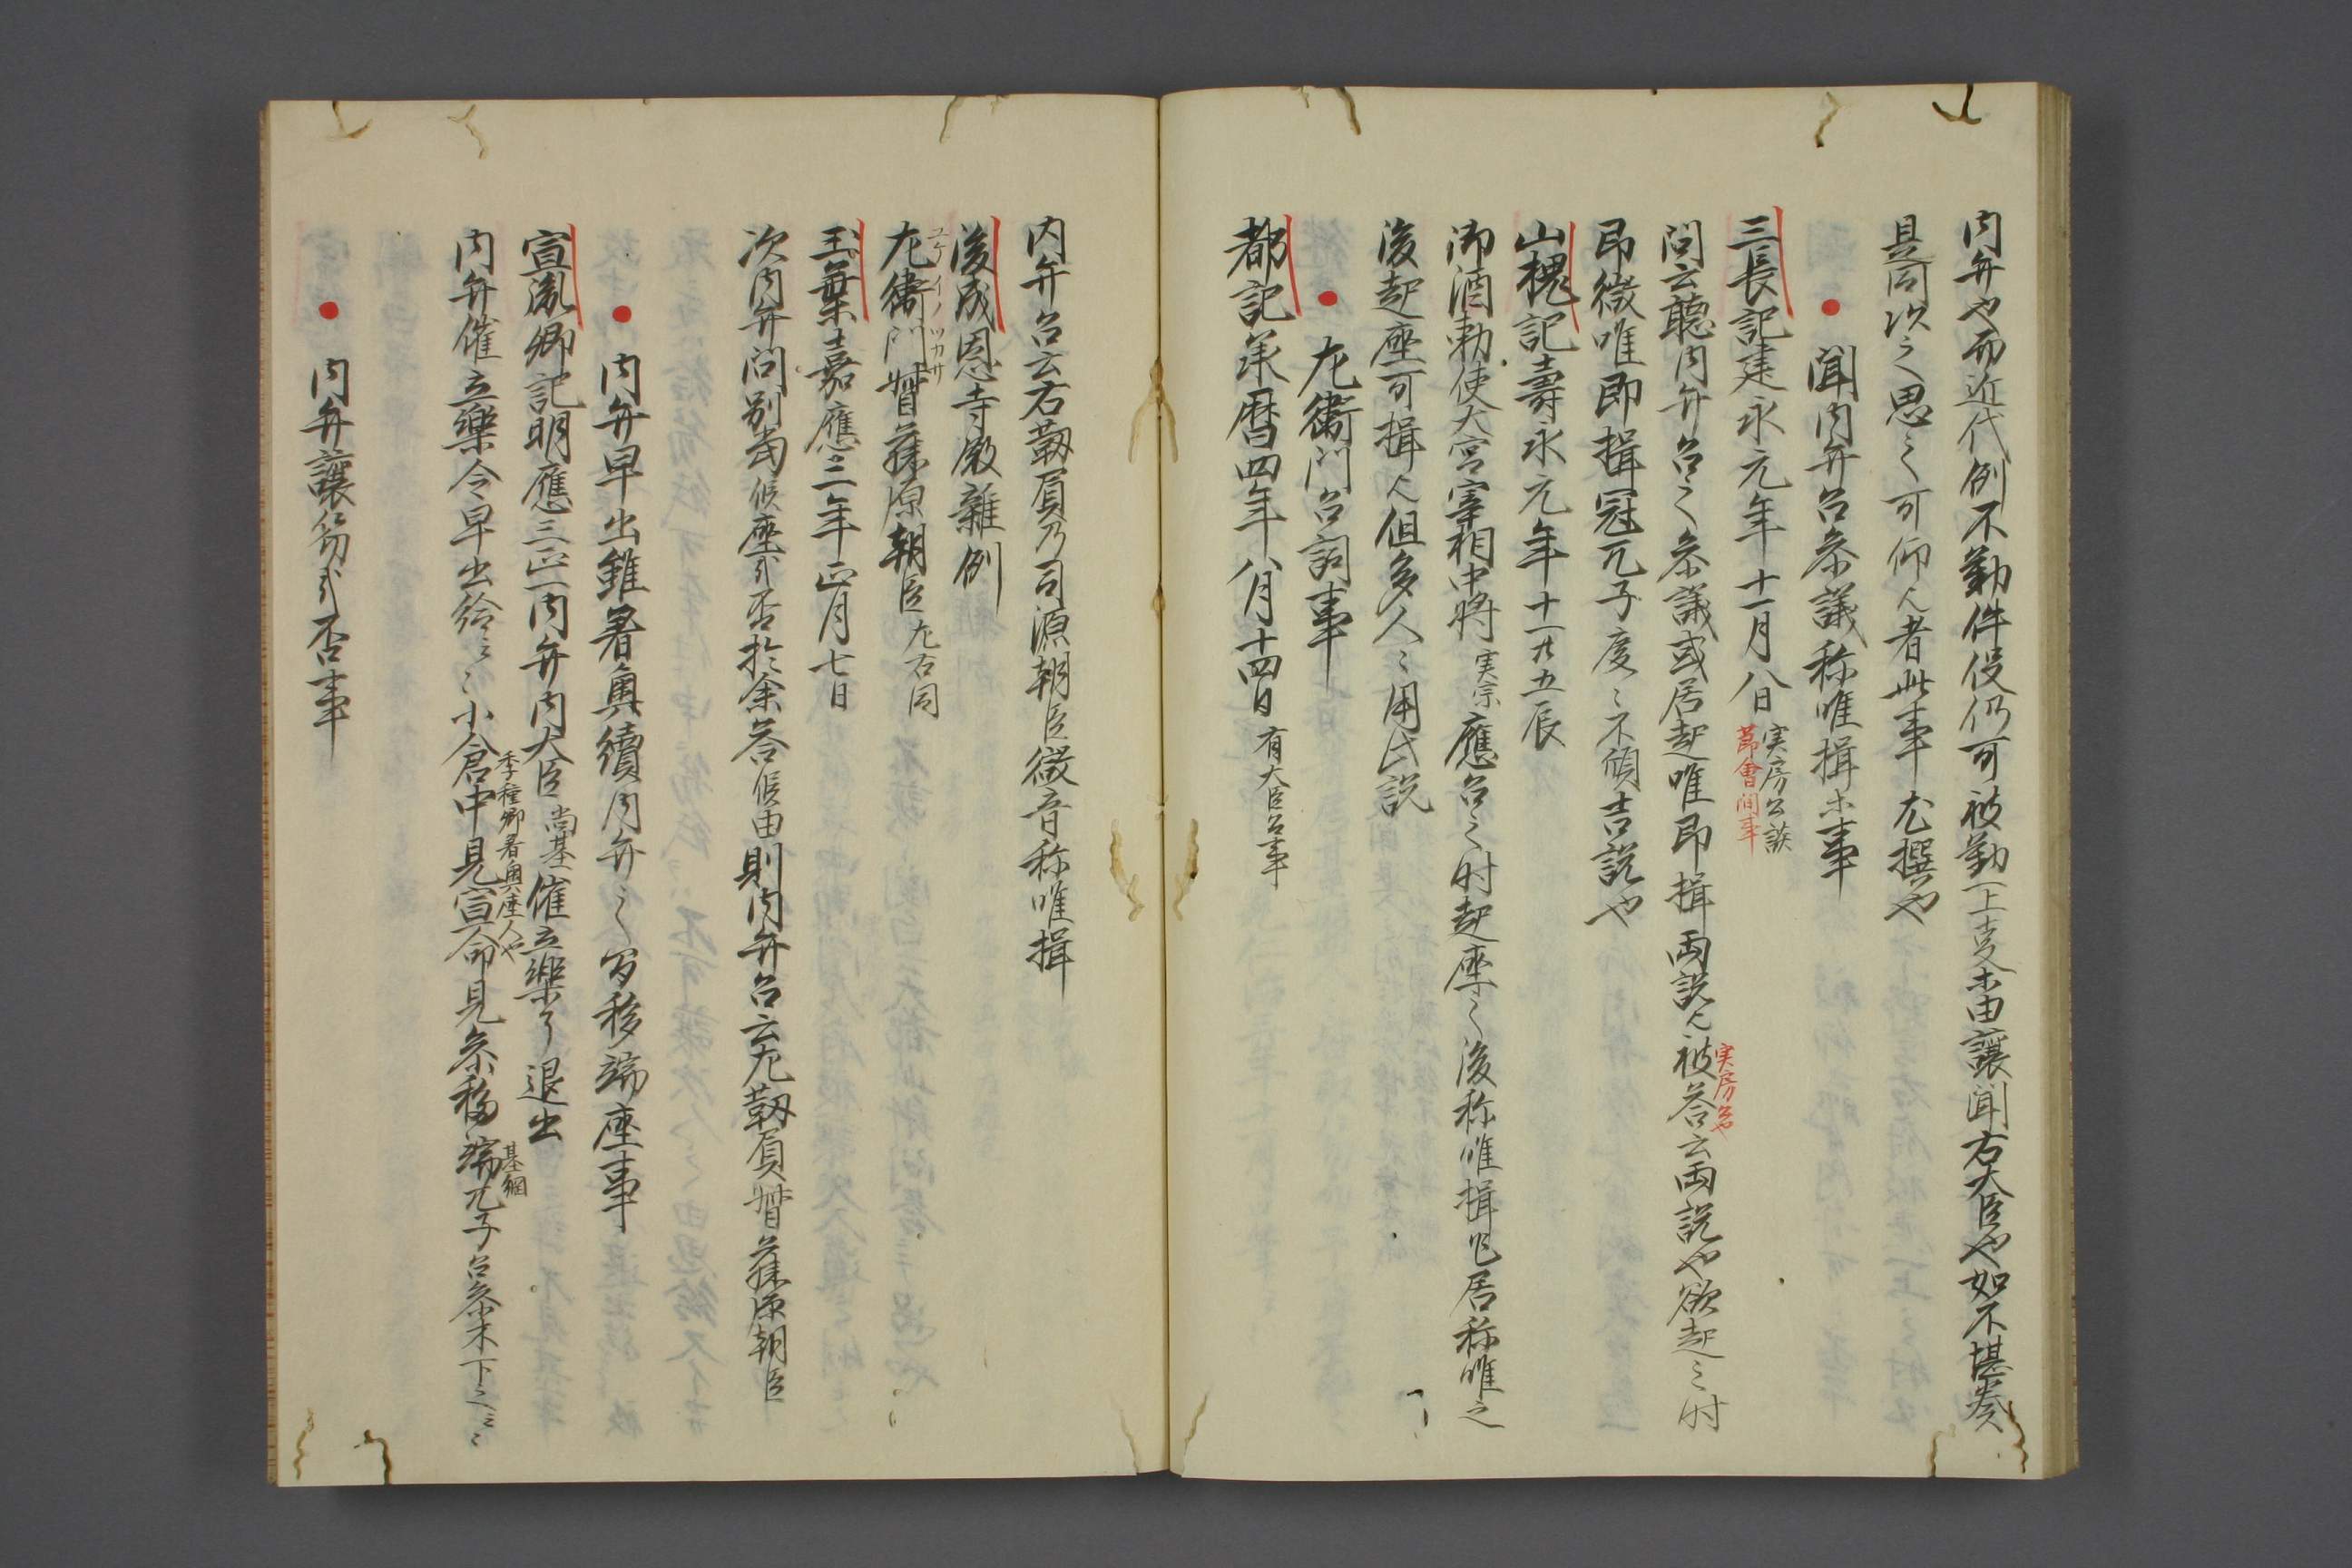 内弁や而近代例不勤件役仍可被勤一上妻ホ由譲聞右大臣や如不堪奏
是同次之思之可仰人者此事尤撰や
聞内弁召参議称唯揖ホ事
三長記建永元年十一月八日実房公談
節會間事
問云聴内弁召之参議或居起唯即揖両説也被答云両説や欲起之時
実房公や
即微唯即揖冠兀子度ゝ不傾吉説や
山槐記壽永元年十一廿五辰
御酒勅使大宮宰相中将実宗應召之時起座之後称唯揖也居称唯之
後起座可揖也但多人ゝ用此説
左衛門召詞事
都記承暦四年八月十四日有大臣召事
内弁召云右靱負乃司源朝臣微音称唯揖
後成恩寺殿雜例
左衛門督藤原朝臣左右同
ユケイノツカサ
玉葉嘉應三年正月七日
次内弁問別當候座哉否於余答候由則内弁召云左靱負督藤原朝臣
内弁早出雖著奥續内弁之間移端座事
宣胤卿記明應三正一内弁内大臣尚基催立樂了退出
季種卿着奥座人や
内弁催立樂令早出給云ゝ小倉中見宣命見参移端兀子召参木下之云ゝ
基綱
内弁譲笏哉否事